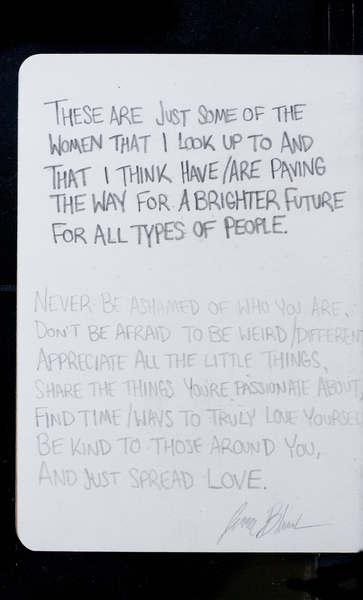 THESE ARE JUST SOME OF THE
WOMEN THAT I LOOK UP TO AND
THAT I THINK HAVE/ARE PAVING
THE WAY FOR A BRIGHTER FUTURE
FOR ALL TYPES OF PEOPLE.
NEVER BE ASHAMED OF WHO YOU ARE,
DON'T BE AFRAID TO BE WEIRD/DIFFERENT
APPRECIATE ALL THE LITTLE THINGS,
SHARE THE THINGS YOU'RE PASSIONATE ABOUT,
FIND TIME/WAYS TO TRULY LOVE YOURSELF
BE KIND TO THOSE AROUND YOU,
AND JUST SPREAD LOVE.